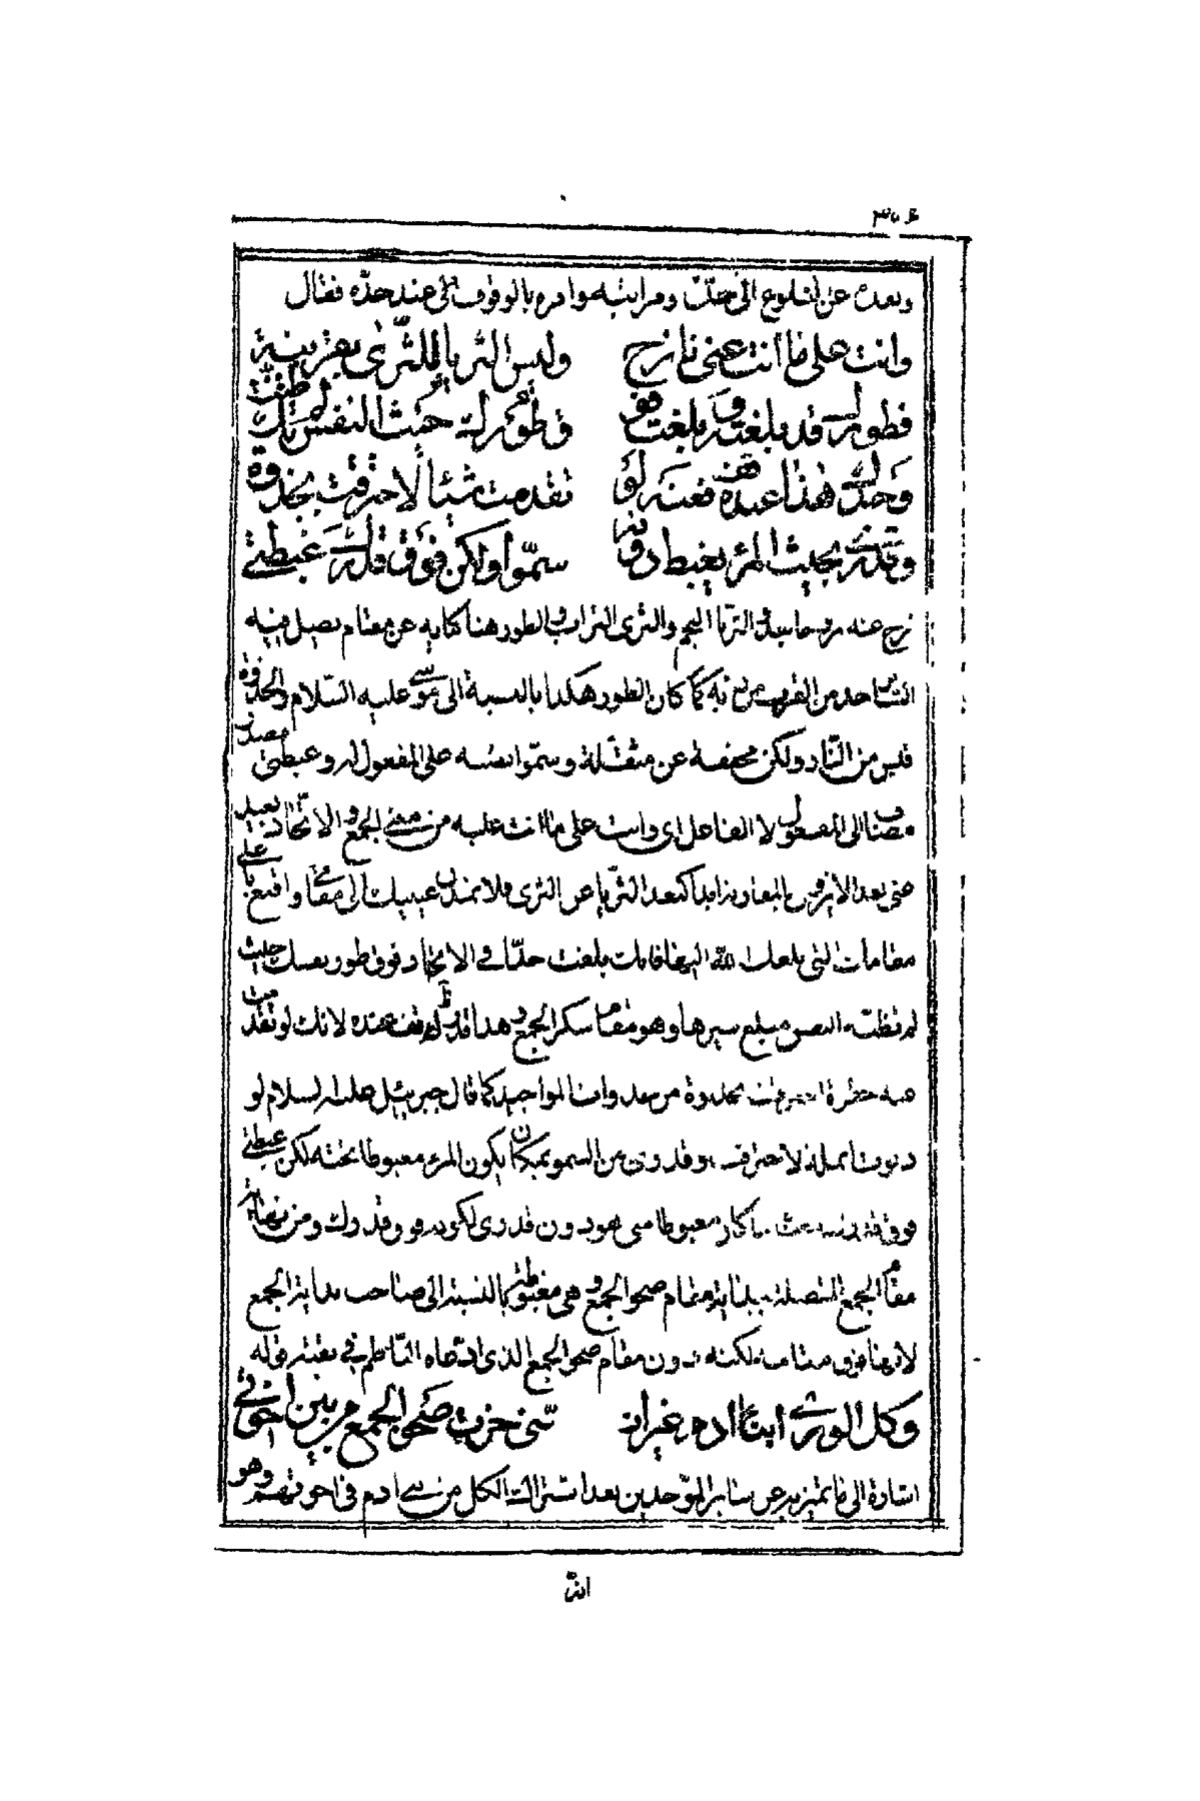 وبعده عن البلوغ الى محلّه ومراتبه وامره بالوقوف عند حدّه فقال
وانت على ما انت عنى نازح وليس الثريا للثرى بقرينة
فطورك قد بلغته وبلغت فو ق طورك حيث النفس لم تك ظنت
وحدك هذا عنده قف فعنه لو تقدمت شيئا لاحترقت بجذوة
وقدرى بحيث المرء يغبط دونه سموا ولكن فوق قدرك غبطتى
نزح عنه الثريا النجم والثرى التراب والطور هنا كناية عن مقام يصل فيه
من القرب من ربه كما كان الطور هكذا بالنسبة الى موسى عليه السّلام والجذوة
قبس من النّار ولكن مخففة عن مثقّلة وسمّوا نصبه على المفعول له وغبطتى مصدر
مضاف الى المفعول لا الفاعل اى وانت على ما انت عليه من معنى الجمع والاتّحاد بعيد
عنى ابدا كبعد الثريّا عن الثرى فلا تمدن عينيك الى مقامى واقنع بما على
مقامات التى بلغك اللّه اليها فانك بلغت حدّا فى الاتحاد فوق طور نفسك حيث
لم تظنّه النفس مبلغ سيرها وهو مقام سكر الجمع وهذا قدرك قف عنده لانك لو تقدمت
كما قال جبرئيل عليه السلام لو
دنوت انملة لاحترقت وقدرى من السمو بمكان يكون المرء مغبوطا تحته لكن غبطتى
فوق قدرك دون قدرى لكونه فوق قدرك ومن نهاية
مقام الجمع المتصلة ببداية مقام صحو الجمع وهى مغبوطة بالنسبة الى صاحب بداية الجمع
لانها فوق مقامه لكنه دون مقام صحو الجمع الذى ادّعاه النّاظم فى بقيّة قوله
وكل الورى ابناء ادم غير انـ ـنى حزت صحو الجمع من بين اخوتى
اشارة الى ما تميّز به عن سائر الموّحدين بعد اشتراك الكل من بنى ادم فى اخوتهم وهو